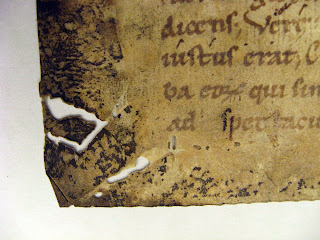 dicens, Vere
iustus erat,
ba eoꝝ qui sim
ad spectacu